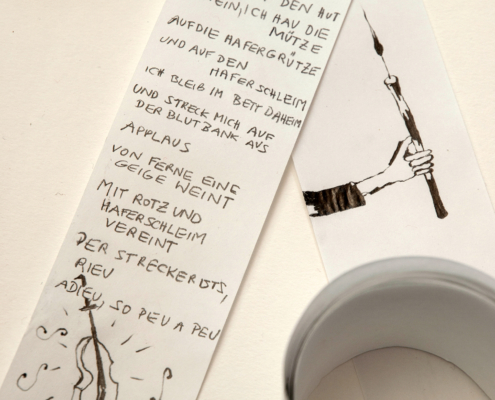 DEN HUT
EIN, ICH HAV DIE
MÜTZE
AUF DIE HAFERGRÜTZE
UND AUF DEN
HAFERSCHLEIM
ICH BLEIB IM BETT DAHEIM
UND STRECK MICH AUF
DER BLUTBANK AUS
APPLAUS
VON FERNE EINE
GEIGE WEINT
MIT ROTZ UND
HAFERSCHLEIM
VEREINT
DER STRECKER ISTS,
RIEU
ADIEU, SO PEU A PEU